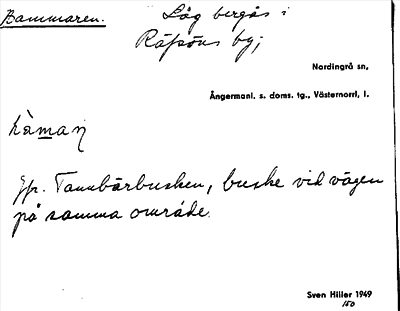 Bammaren. Låg bergås i
Räfsöns by;
Nordingrå sn,
Ångermanl. s. doms. tg., Västernorrl. l.
Jfr. Tannbärbusken, buske vid vägen
på samma område.
Sven Hiller 1949
150